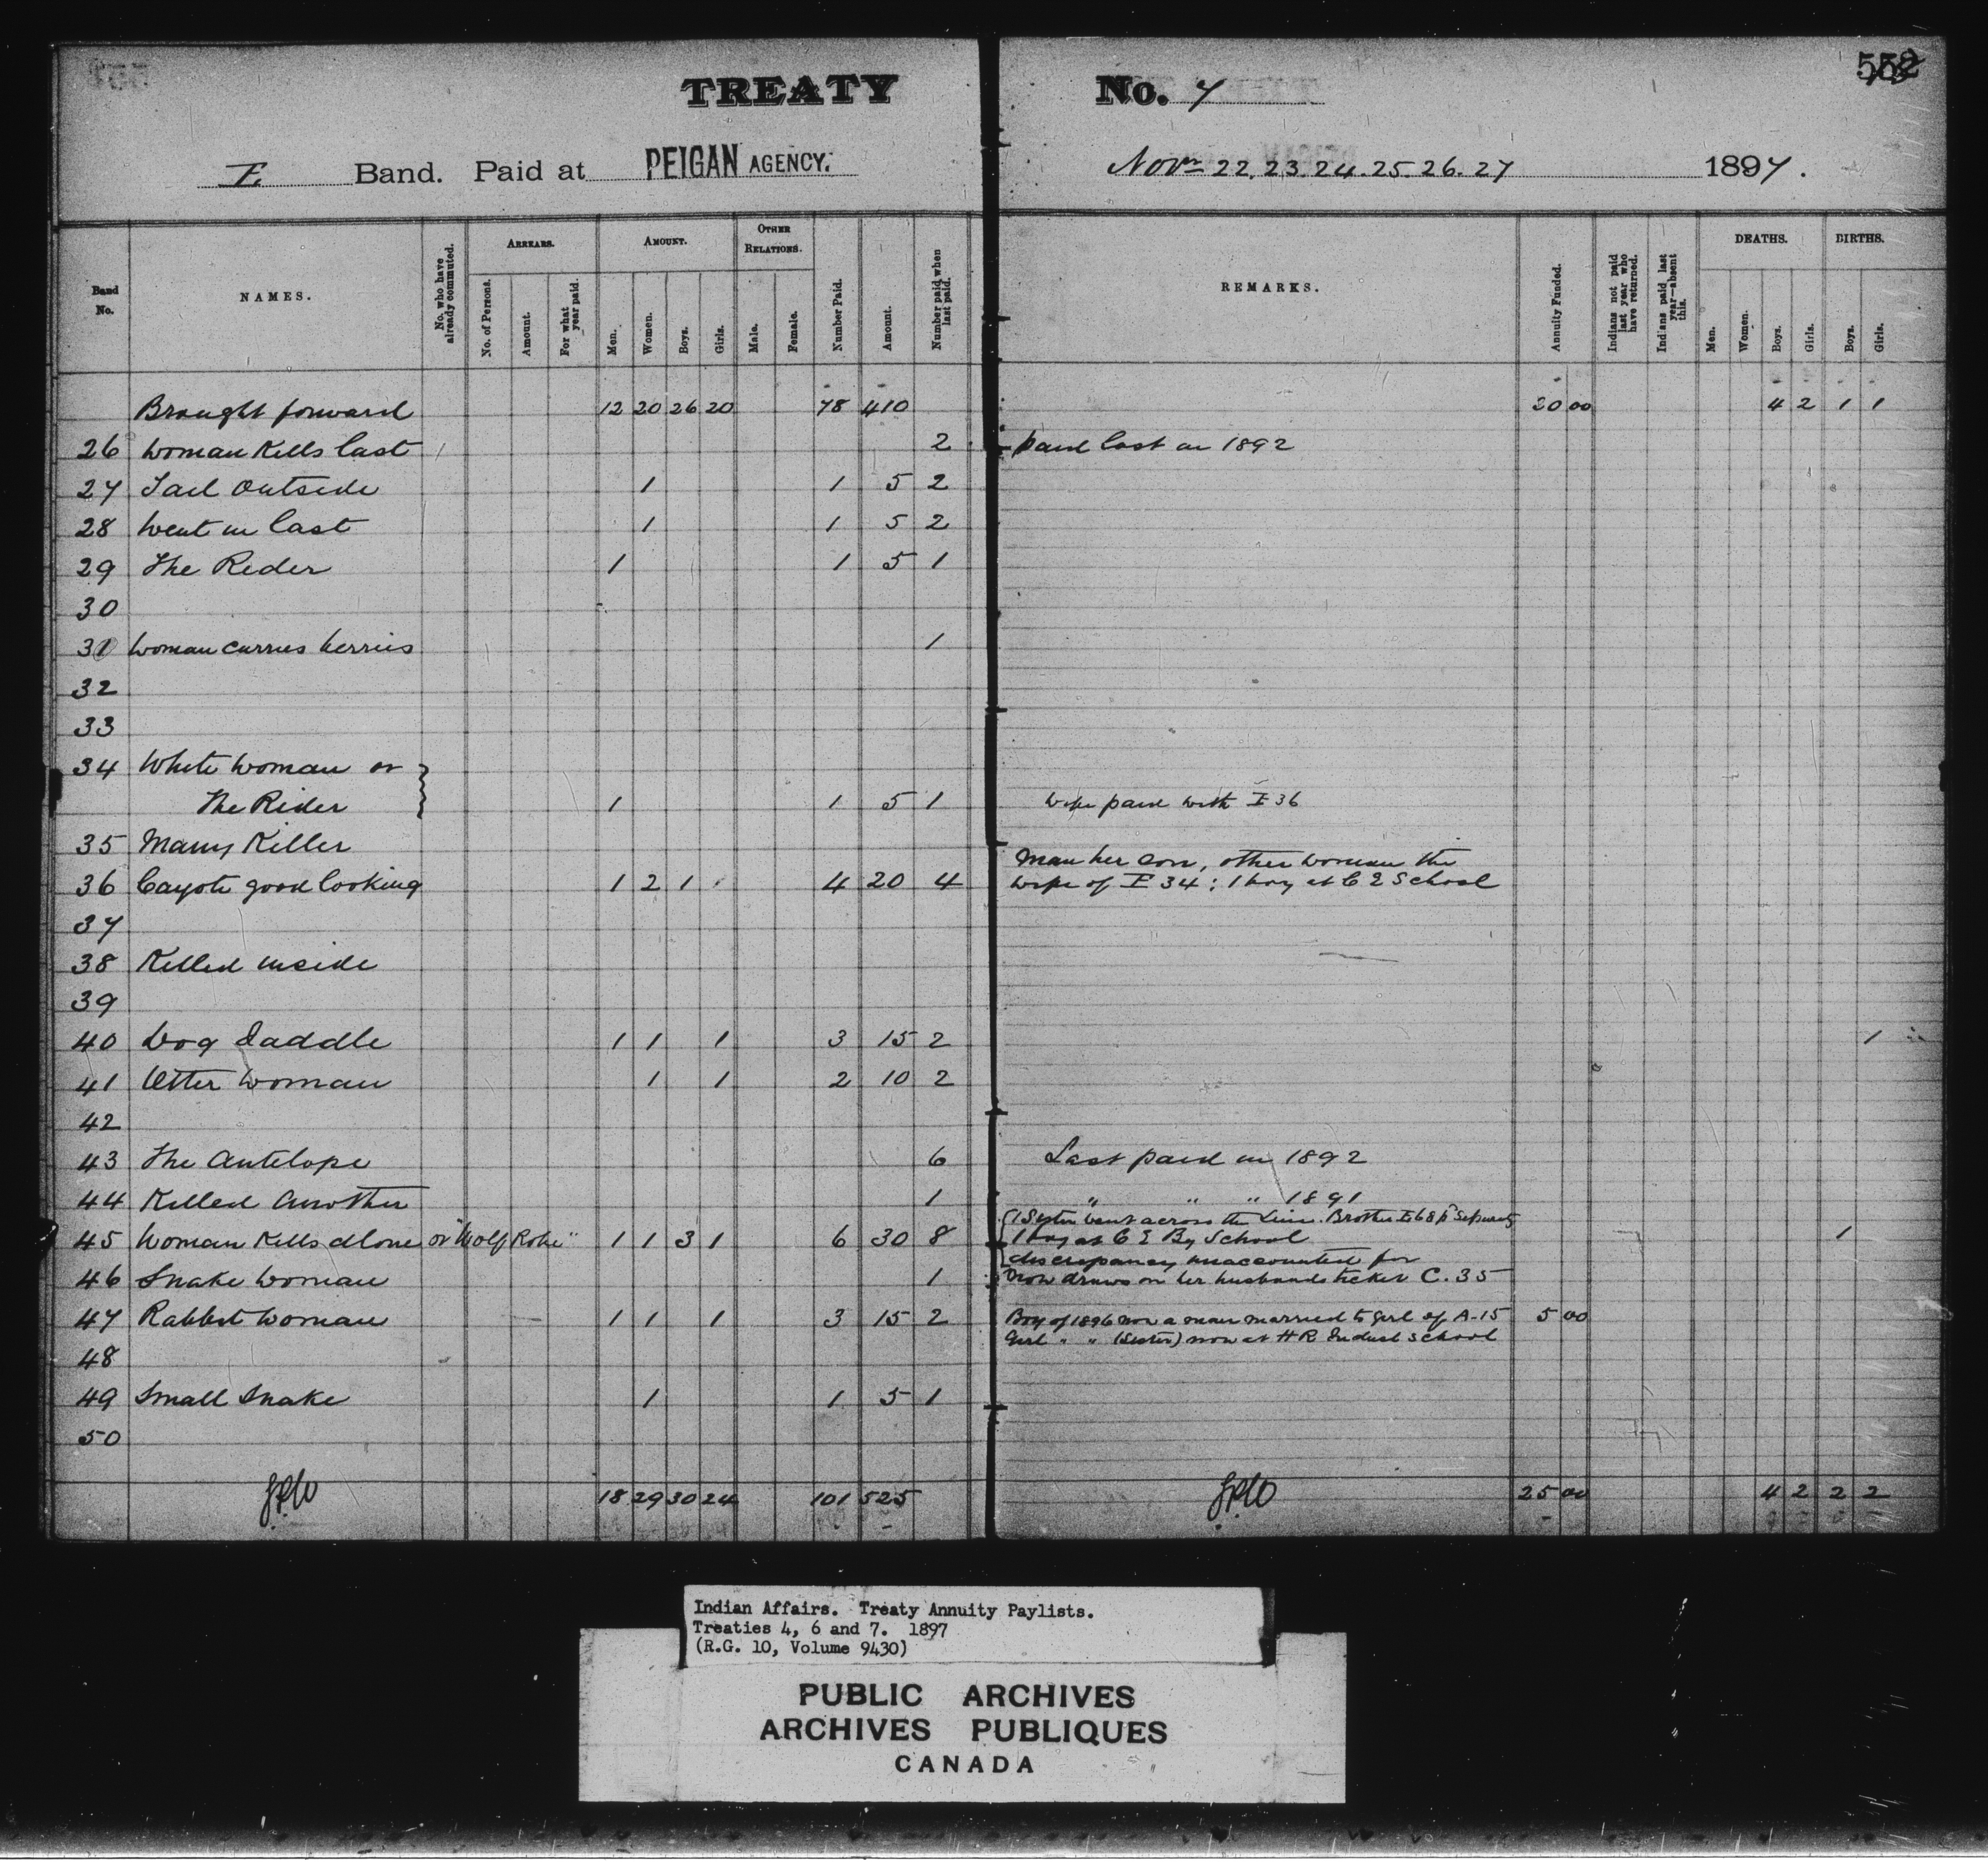 TREATY No. 7
E Band. Paid at PEIGAN AGENCY. Novr 22. 23. 24. 25. 26. 27 1897.
Band No. NAMES. No. who have already commuted. ARREARS. No. of Persons. Amount. For what year paid. AMOUNT. Men. Women. Boys. Girls. OTHER RELATIONS. Male. Female. Number Paid. Amount. Number paid when last paid. REMARKS. Annuity Funded. Indians not paid last year who have returned. Indians paid last year—absent this. DEATHS. Men. Women. Boys. Girls. BIRTHS. Boys. Girls.
Brought forward 12 20 26 20 78 410 20 00 4 2 1 1
26 Woman Kills last 2 paid last in 1892
27 Tail Outside 1 1 5 2
28 Went in last 1 1 5 2
29 The Rider 1 1 5 1
30
31 Woman carries berries 1
32
33
34 White Woman or
The Rider 1 1 5 1 Wife paid with E 36
35 Many Killer
Man her son, other woman the
36 Cayote good looking 1 2 1 4 20 4 wife of E 34; 1 boy at C E School
37
38 Killed inside
39
40 Dog Saddle 1 1 1 3 15 2 1
41 Otter Woman 1 1 2 10 2
42
43 The Antelope 6 Last paid in 1892
44 Killed Another 1 " " " 1891
1 Sister went across the Line. Brother E 68 pd Separately
45 Woman Kills alone or "Wolf Robe" 1 1 3 1 6 30 8 1 boy at C E Bg School 1
discrepancy unaccounted for
46 Snake Woman 1 Now draws on her husbands ticket C. 35
47 Rabbit Woman 1 1 1 3 15 2 Boy of 1896 now a man married to girl of A-15 5 00
Girl " " (Sister) now at H R Indust School
48
49 Small Snake 1 1 5 1
50
18 29 30 24 101 525 25 00 4 2 2 2
Indian Affairs. Treaty Annuity Paylists.
Treaties 4, 6 and 7. 1897
(R.G. 10, Volume 9430)
PUBLIC ARCHIVES
ARCHIVES PUBLIQUES
CANADA